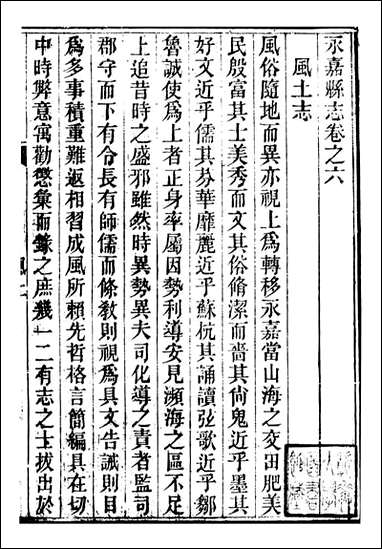 永嘉縣志卷之六
風土志
風俗隨地而異亦視上爲轉移永嘉當山海之交田肥美
民殷富其士美秀而文其俗脩潔而嗇其尙鬼近乎墨其
好文近乎儒其芬華靡麗近乎蘇杭其誦讀弦歌近乎鄒
魯誠使爲上者正身率屬因勢利導安見瀕海之區不足
上追昔時之盛邪雖然時異勢異夫司化導之責者監司
郡守而下有令長有師儒而條敎則視爲具文告誡則目
爲多事積重難返相習成風所賴先哲格言簡編具在切
中時弊意寓勸懲彙而錄之庶幾一二有志之士拔出於